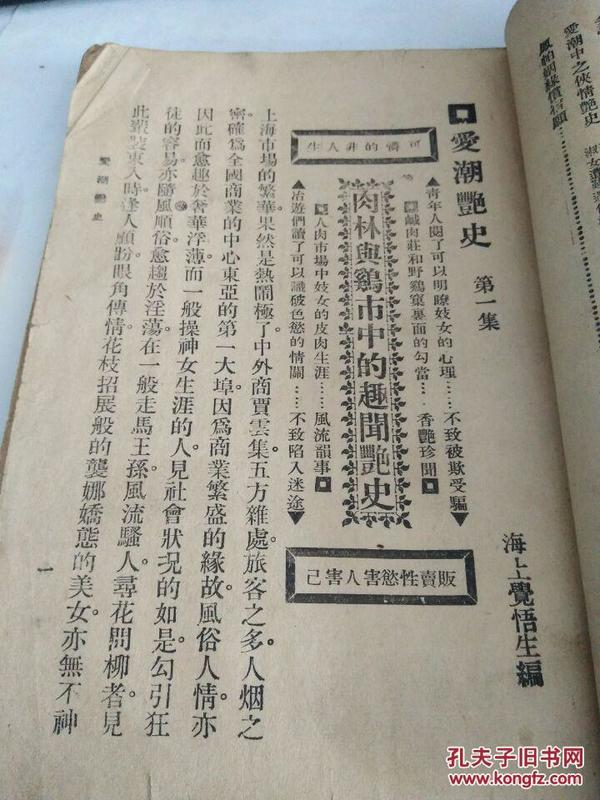 愛潮中之俠情艷史
愛潮艷史 第一集
海上覺悟生編
▲青年人閱了可以明瞭妓女的心理……不致被欺受騙▼
鹹肉莊和野鷄窠裏面的勾當……香艷珍聞
可憐的非人生
肉林與鷄市中的趣聞艷史
販賣性慾害人害己
人肉市場中妓女的皮肉生涯……風流韻事
▲冶遊們讀了可以識破色慾的情關……不致陷入迷途▼
上海市場的繁華果然是熱鬧極了。中外商賈雲集五方雜處。旅客之多。人烟之
密。確爲全國商業的中心東亞的第一大埠。因爲商業繁盛的緣故。風俗人情亦
因此而愈趨於奢華浮薄。而一般操神女生涯的人。見社會狀況的如是。勾引狂
徒的容易。亦隨風順俗。愈趨於淫蕩。在一般走馬王孫。風流騷人。尋花問柳者。見
此嚴裝束入時。逢人顧盼。眼角傳情。花枝招展般的龔娜嬌態的美女。亦無不神
愛潮艷史
一
孔夫子旧书网
www.kongfz.com